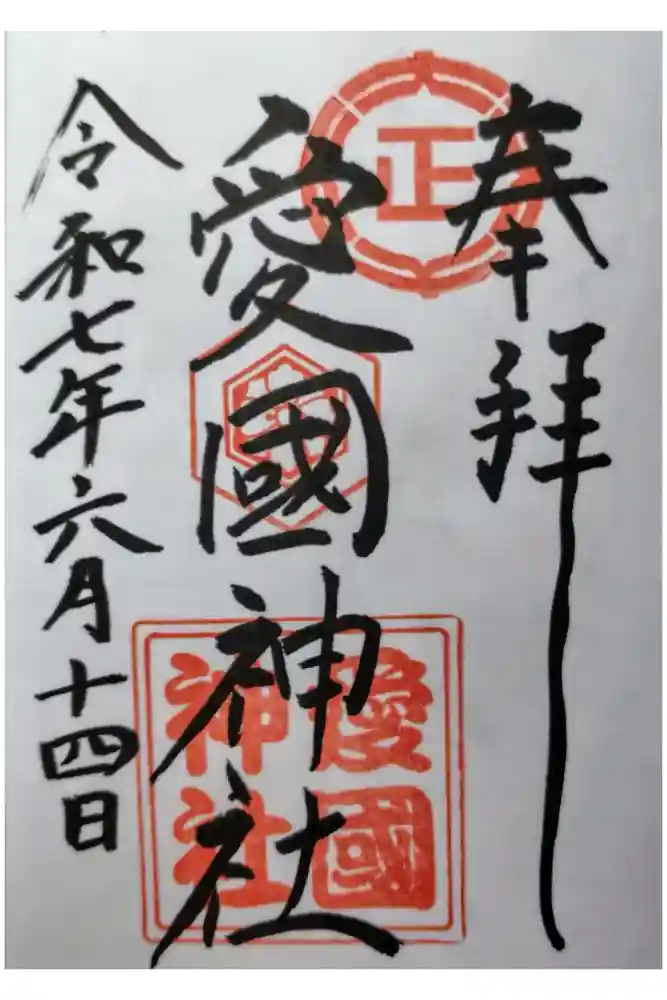 奉拝
正
愛國神社
愛國
神社
令和七年六月十四日